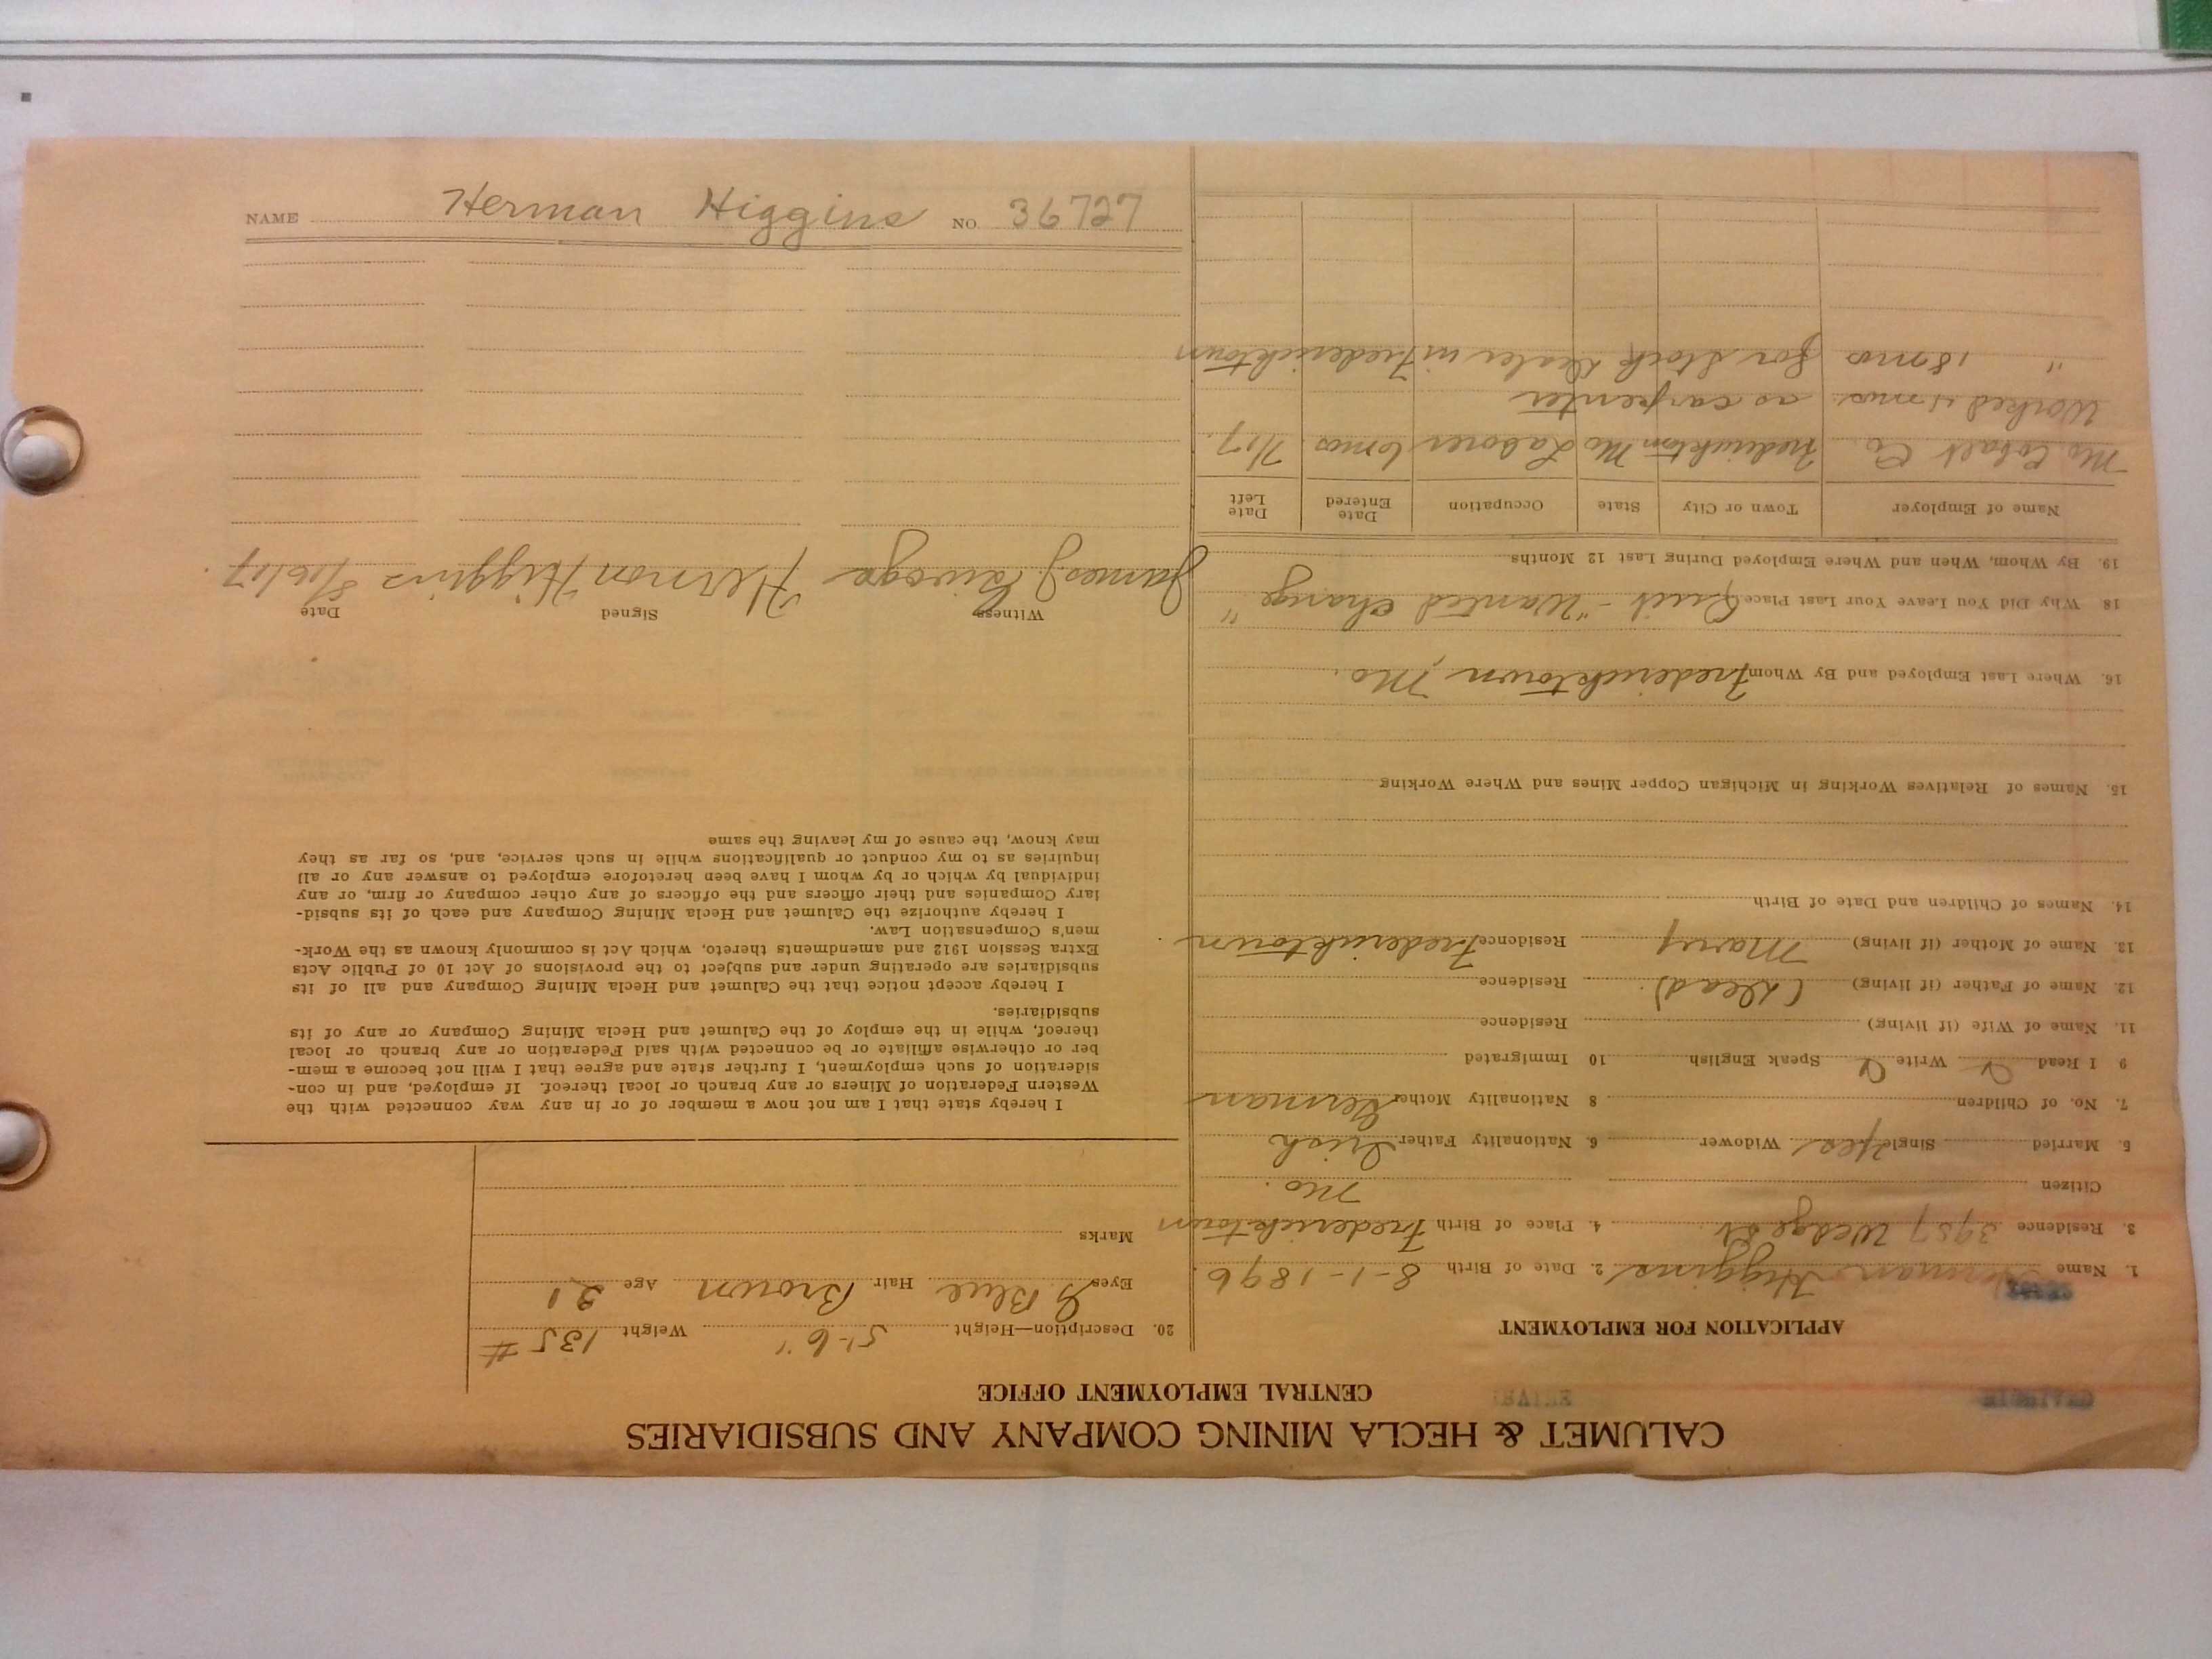 NAME Herman Higgins NO. 36727
CALUMET & HECLA MINING COMPANY AND SUBSIDIARIES
CENTRAL EMPLOYMENT OFFICE
APPLICATION FOR EMPLOYMENT
1. Name Herman Higgins 2. Date of Birth 8-1-1896
3. Residence 3957 St. 4. Place of Birth Fredericktown
Citizen Mo.
5. Married Single Yes Widower 6. Nationality Father Irish
7. No. of Children 8 Nationality Mother German
9 I Read Write Speak English 10 Immigrated
11. Name of Wife (if living) Residence
12. Name of Father (if living) (Dead) Residence
13. Name of Mother (if living) Mary Residence Fredericktown
14. Names of Children and Date of Birth
15. Names of Relatives Working in Michigan Copper Mines and Where Working
16. Where Last Employed and By Whom Fredericktown, Mo.
18. Why Did You Leave Your Last Place Quit - "Wanted change"
19. By Whom, When and Where Employed During Last 12 Months
Name of Employer Town or City State Occupation Date Entered Date Left
Mo Cobalt Co. Fredericktown Mo Laborer 6 mos 7/17.
Worked mos. as carpenter
" 18 mos for Stock Dealer in Fredericktown
20. Description—Height 5'-6" Weight 135 #
Eyes Blue Hair Brown Age 21
Marks
I hereby state that I am not now a member of or in any way connected with the
Western Federation of Miners or any branch or local thereof. If employed, and in con-
sideration of such employment, I further state and agree that I will not become a mem-
ber or otherwise affiliate or be connected with said Federation or any branch or local
thereof, while in the employ of the Calumet and Hecla Mining Company or any of its
subsidiaries.
I hereby accept notice that the Calumet and Hecla Mining Company and all of its
subsidiaries are operating under and subject to the provisions of Act 10 of Public Acts
Extra Session 1912 and amendments thereto, which Act is commonly known as the Work-
men's Compensation Law.
I hereby authorize the Calumet and Hecla Mining Company and each of its subsid-
iary Companies and their officers and the officers of any other company or firm, or any
individual by which or by whom I have been heretofore employed to answer any or all
inquiries as to my conduct or qualifications while in such service, and, so far as they
may know, the cause of my leaving the same
Witness Signed Date
James J. Herman Higgins 8/16/17